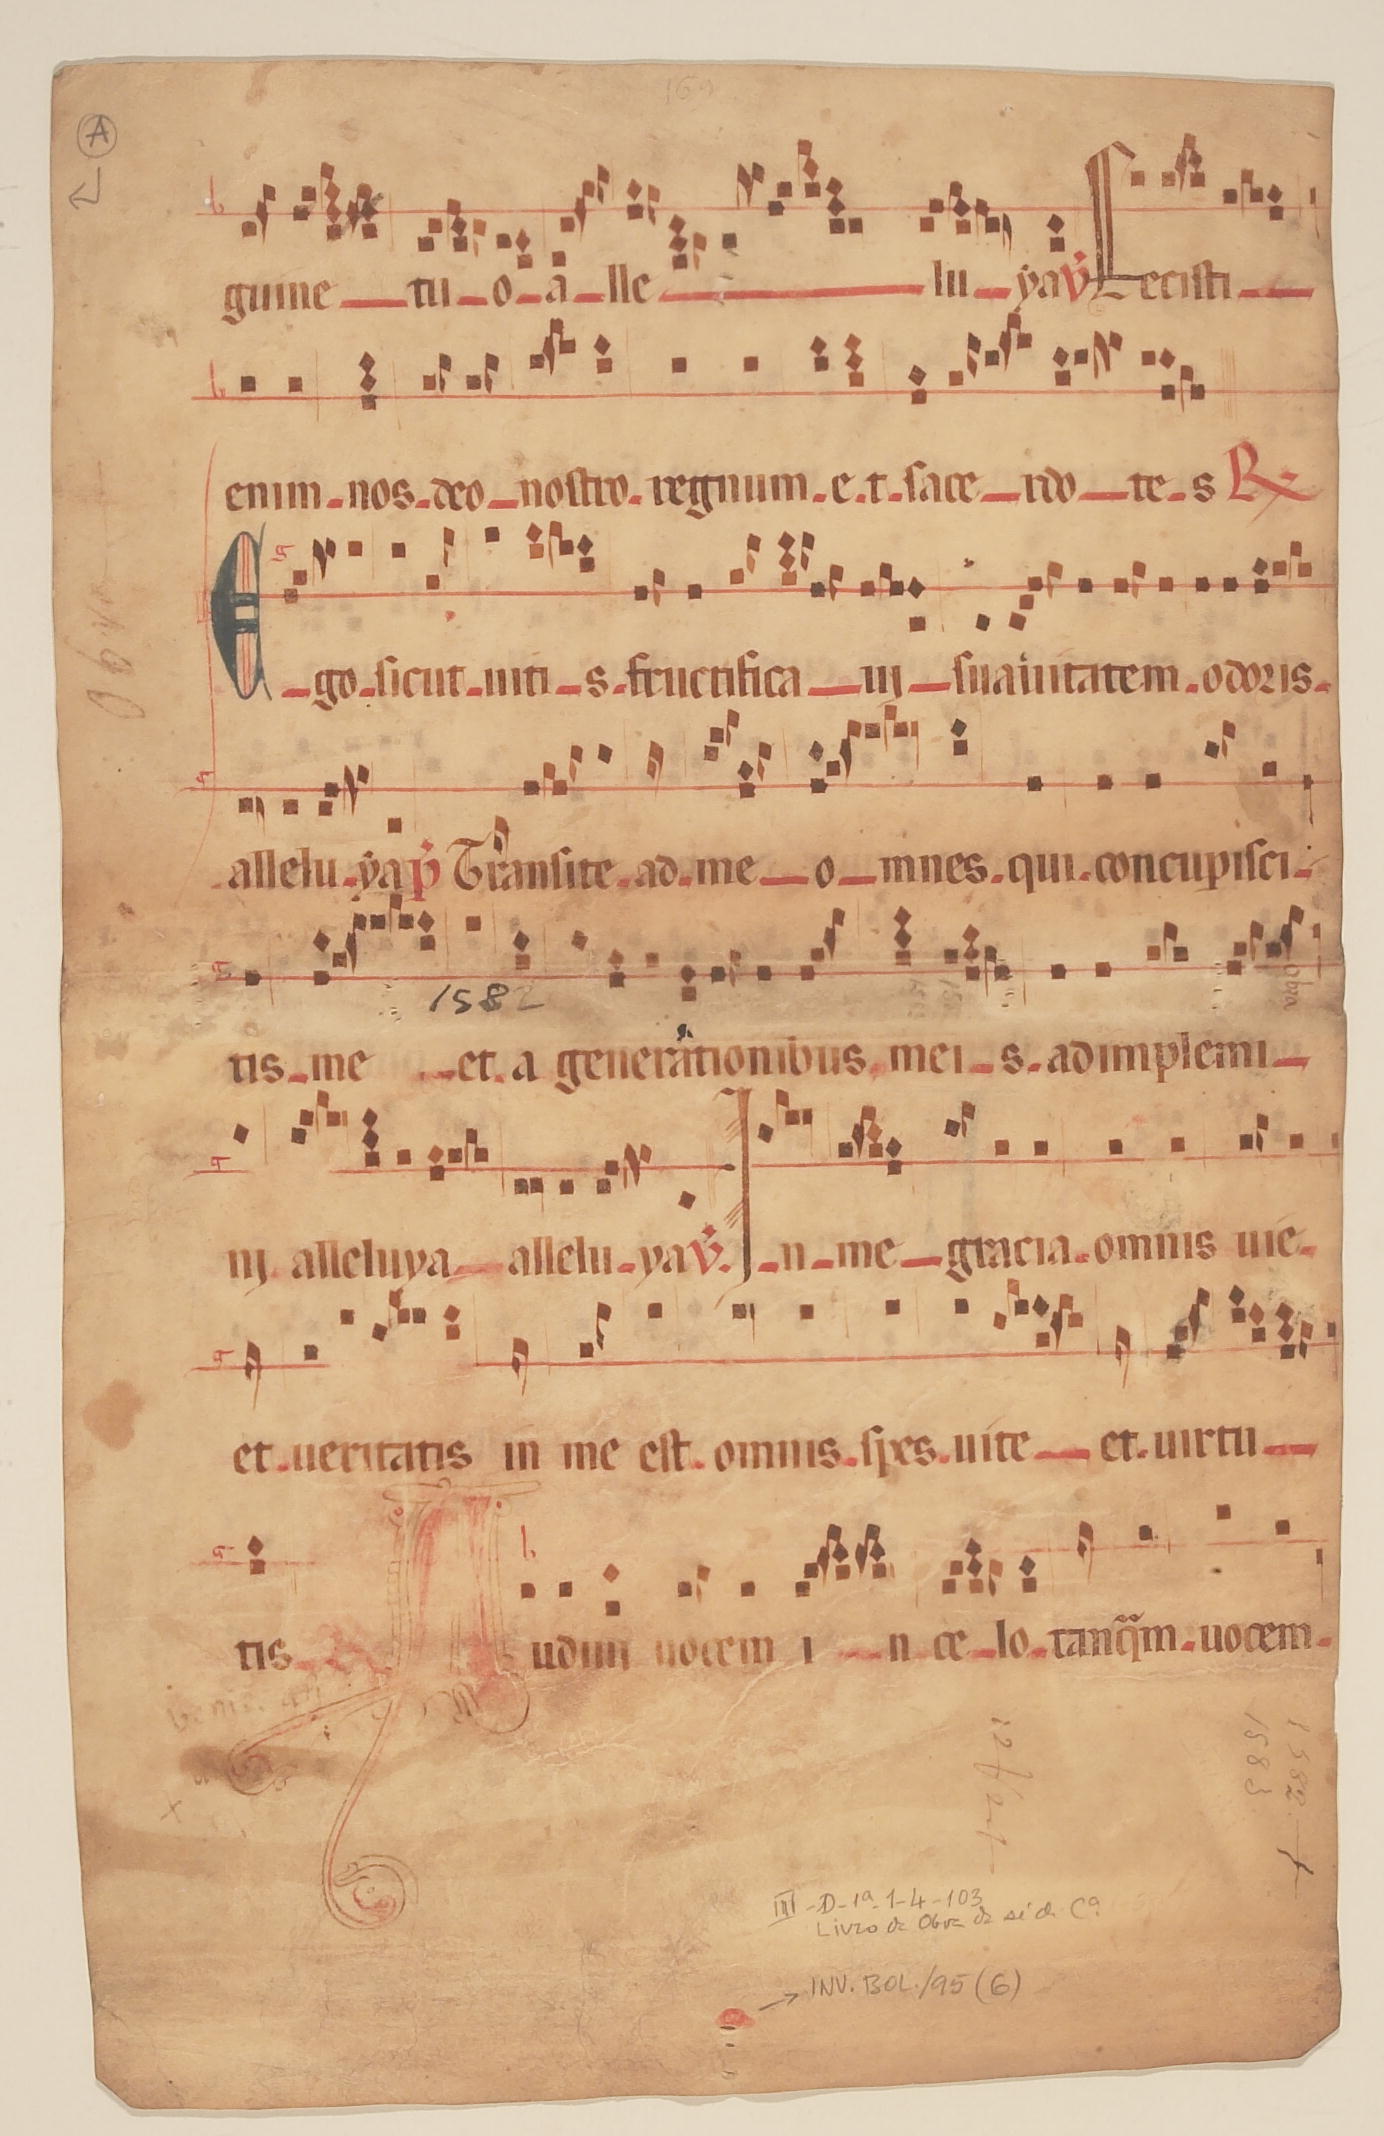 169
A
guine tu o a lle lu ya v Fecisti
enim nos deo nostro regnum e t sace rdo te s R
Ego sicut uiti s fructifica uj suauitatem odoris
allelu ya p Transite ad me o mnes qui concupisci
1582
tis me et a generationibus mei s adimplemi
nj alleluya allelu ya v In me gracia omnis uie
et ueritatis in me est omnis spes uite et uirtu
tis Audiui uocem i n ce lo tanq̃m uocem
Obra
1582
1583
III-D-1ª-1-4-103
Livro da Obra da sé de Cª
INV. BOL./95 (6)